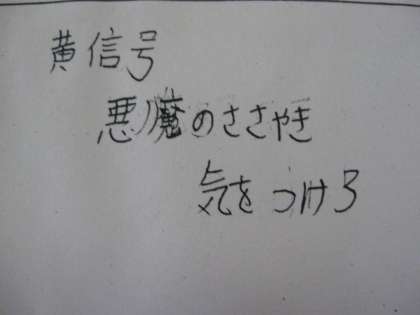 黄信号
悪魔のささやき
気をつけろ